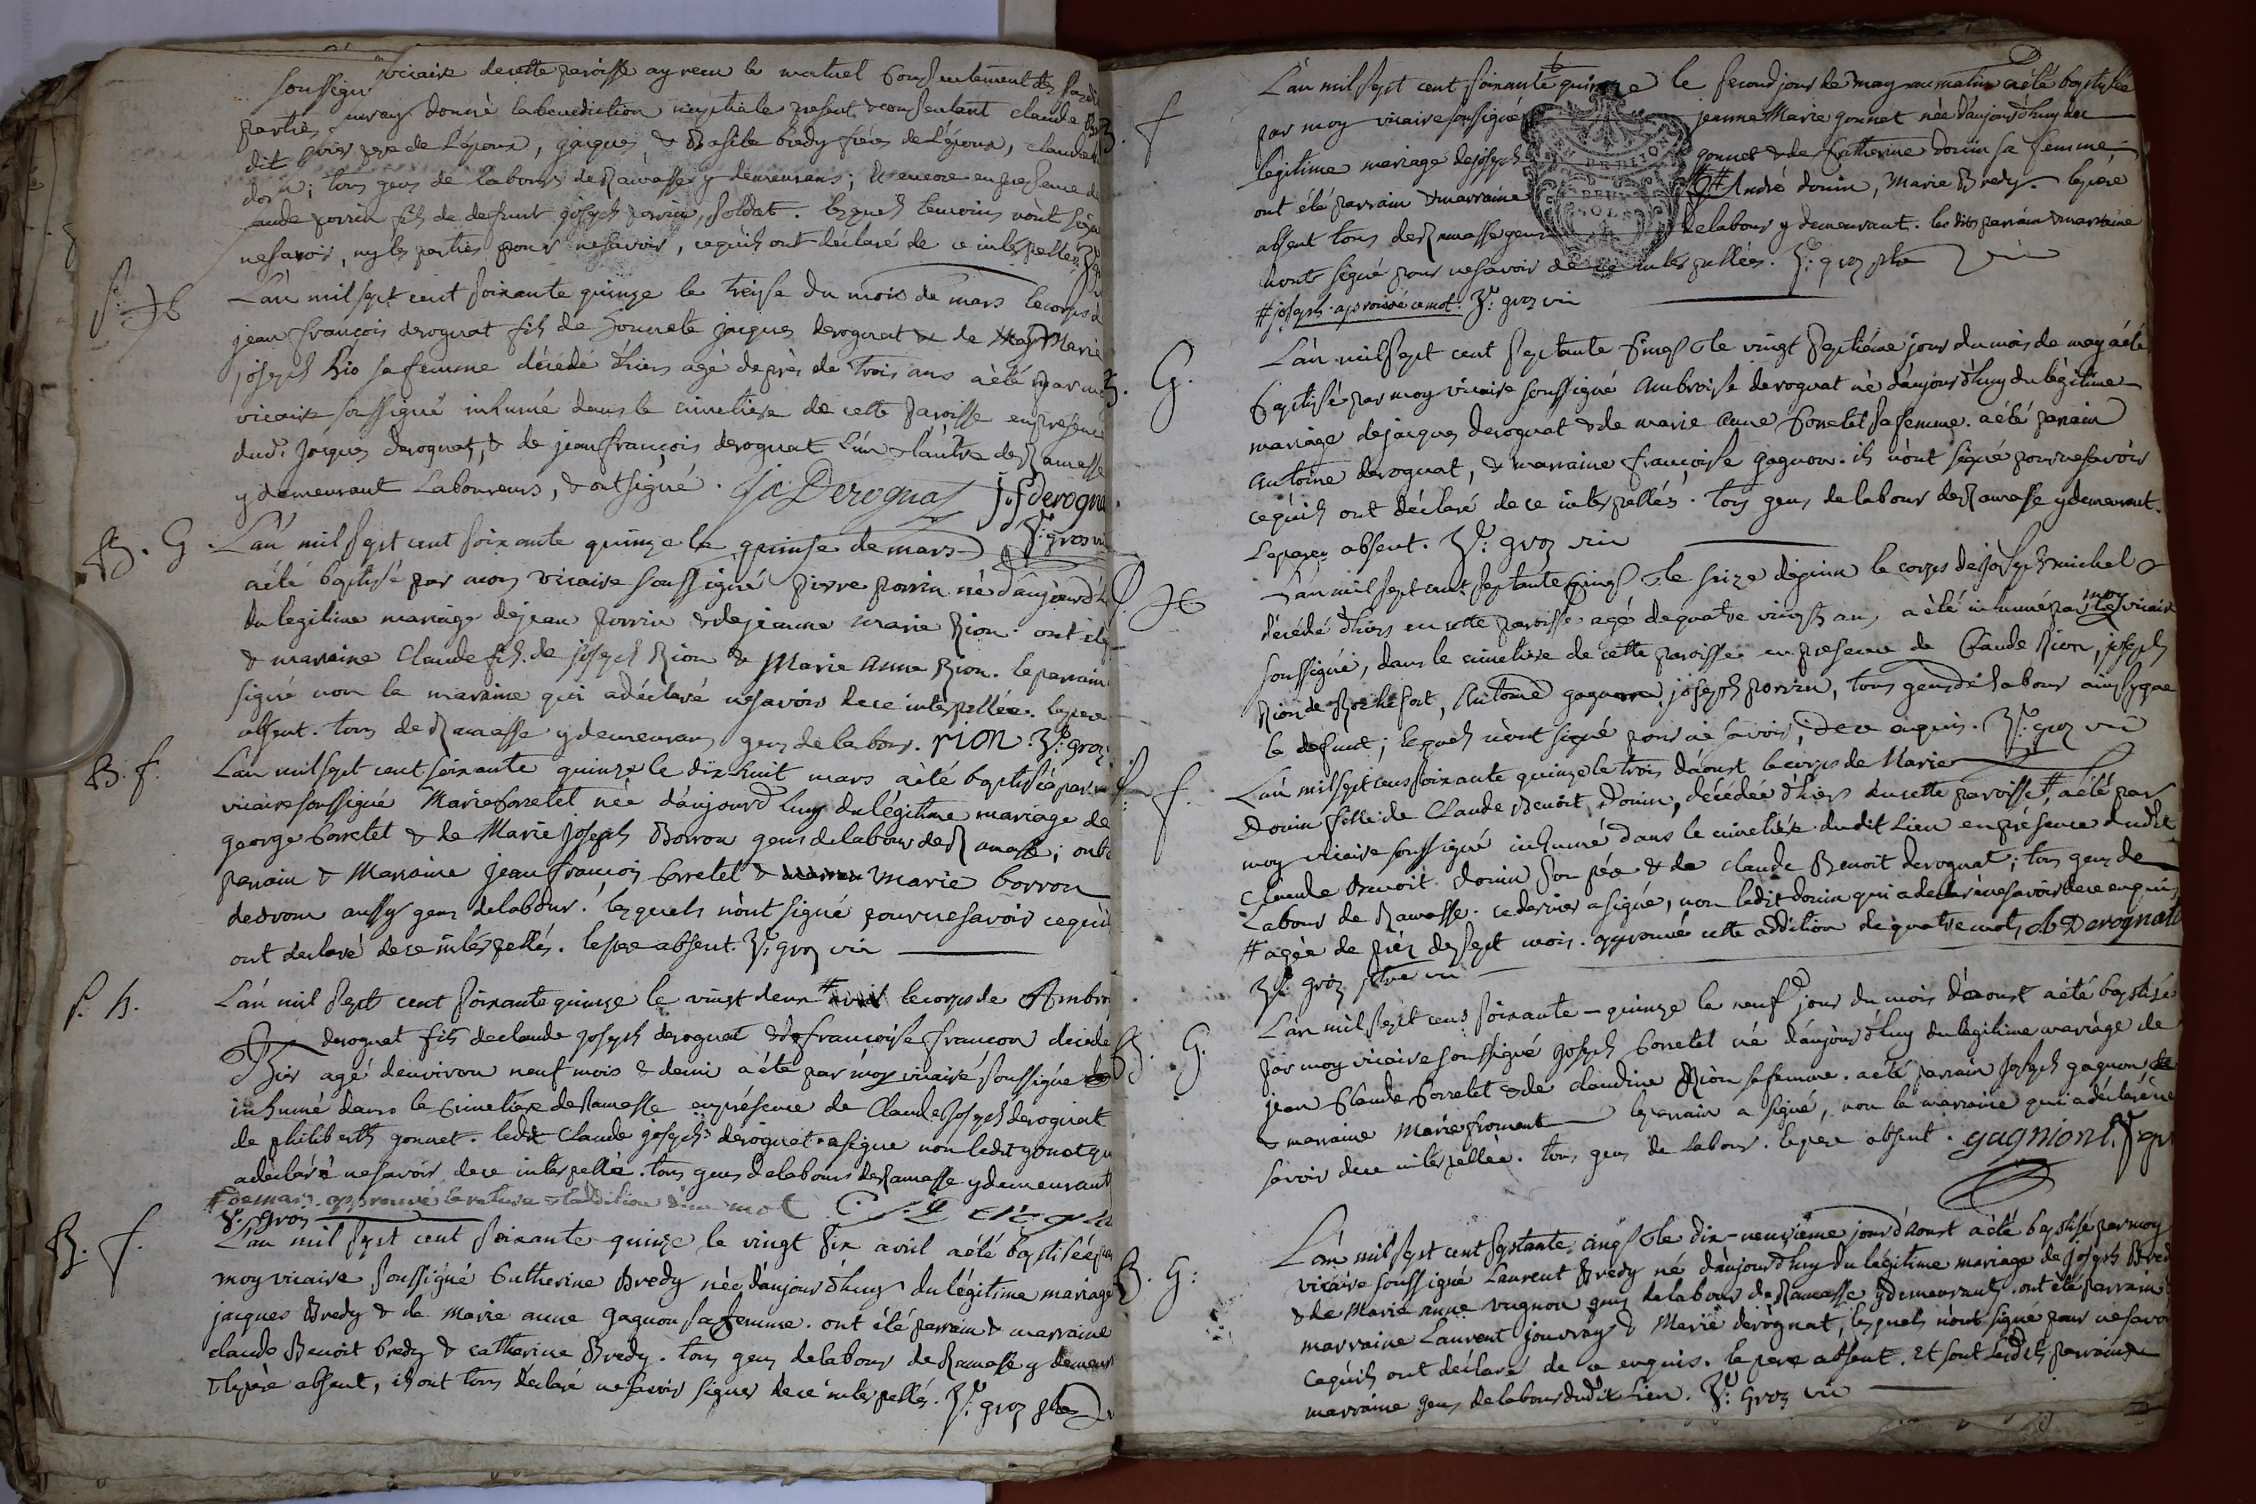 soussigné vicaire de cette paroisse ay recu le mutuel consentement des susdites
parties, leur ay donné la benediction nuptiale present & consentant claude
dit pere de l'époux, jacques & Basile bredy freres de l'époux, claude
tous gens de labours de Ramasse y demeurans; & encore en presence de
claude porrin fils de defunt joseph porrin, soldat. lesquels temoins n'ont signé
ne savoir, ny les parties pour ne savoir, ce qu'ils ont declaré de ce interpellés
S. H
L'an mil sept cent soixante quinze le treise du mois de mars le corps de
jean françois derognat fils de honnete jacques derognat & de Marie
joseph hio sa femme décedé d'hier agé de près de trois ans a été par
vicaire soussigné inhumé dans le cimetiere de cette paroisse en presence
dud. Jacques derognat, & de jean françois derognat l'un & l'autre de Ramasse
y demeurant Laboureurs, & ont signé. Derognat j. f derognat
B. G. L'an mil sept cent soixante quinze le quinse de mars
a été baptisé par moy vicaire soussigné pierre porrin né d'aujourd'hui
du legitime mariage de jean porrin & de jeanne marie Rion. ont été
& marraine claude fils de joseph Rion & Marie anne Rion. le parrain
signé non la maraine qui a déclaré ne savoir de ce interpellée. le pere
absent. tous de Ramasse y demeurans gens de labour. rion. groz
B. f. L'an mil sept cent soixante quinze le dix huit mars a été baptisée par
vicaire soussigné Marie Corretel née d'aujourd'huy du légitime mariage de
george Corretel & de Marie joseph Borron gens de labour de Ramasse; ont
parrain & Marraine jean françois Corretel & marie borron
de drom aussy gens de labour. lesquels n'ont signé pour ne savoir ce qu'ils
ont declaré de ce interpellés. le pere absent. groz vic
S. h. L'an mil sept cent soixante quinze le vingt deux # le corps de Ambroise
derognat fils de claude joseph derognat & de francoise françon decedé
hier agé d'environ neuf mois & demi a été par moy vicaire soussigné
inhumé dans le cimetiere de Ramasse en présence de Claude Joseph derognat
de philiberth gonnet. ledit Claude joseph derognat a signé non ledit gonet qui
a déclaré ne savoir de ce interpellé. tous gens de labours de Ramasse y demeurant
# de mars. approuvé la rature & l'addition d'un mot
groz
B. f. L'an mil sept cent soixante quinze le vingt six avril a été baptisée par
moy vicaire soussigné Catherine Bredy née d'aujourd'huy du légitime mariage
jacques Bredy & de Marie anne gagnon sa femme. ont été parrain & marraine
claude Benoit bredy & catherine Bredy. tous gens de labour de Ramasse y demeurant
& le pere absent, ils ont tous déclaré ne savoir signer de ce interpellés. groz ptre
f L'an mil sept cent soixante quinze le second jour de may au matin a été baptisée
par moy vicaire soussigné jeanne Marie gonnet née d'aujourd'huy du
legitime mariage de joseph gonnet & de Catherine donin sa femme
ont été parrain & marraine # André donin, Marie Bredy. le pere
absent tous de Ramasse gens de labour y demeurant. les dits parrain & marraine
n'ont signé pour ne savoir de ce interpellés. groz ptre vic
# joseph. approuvé ce mot. groz vic
G. L'an mil sept cent septante cinq & le vingt septième jour du mois de may a été
baptisé par moy vicaire soussigné Ambroise derognat né d'aujourd'huy du légitime
mariage de jacques derognat & de marie anne Corretel sa femme. a été parain
antoine derognat, & marraine françoise gagnon. ils n'ont signé pour ne savoir
ce qu'ils ont déclaré de ce interpellés. tous gens de labour de Ramasse y demeurant.
Le pere absent. groz vic
H L'an mil sept cent septante cinq & le seize de juin le corps de joseph michel
décédé d'hier en cette paroisse agé de quatre vingts ans, a été inhumé par moy vicaire
soussigné, dans le cimetiere de cette paroisse en presence de Claude Rion, joseph
Rion de Rochefort, Antoine gagnon, joseph porrin, tous gens de labour ainsy que
le defunt; lesquels n'ont signé pour ne savoir, de ce enquis. groz vic
S. f. L'an mil sept cent soixante quinze le trois d'aoust le corps de Marie
Donin fille de Claude Benoit donin, décédée d'hier en cette paroisse #, a été par
moy vicaire soussigné inhumé dans le cimetière dudit lieu en présence dudit
Claude Benoit donin son père & de claude Benoit derognat; tous gens de
labour de Ramasse. ce dernier a signé, non ledit donin qui a declaré ne savoir de ce enquis
# agée de près de sept mois. approuvé cette addition de quatre mots cb Derognat
groz ptre vic
B. G. L'an mil sept cens soixante-quinze le neuf jour du mois d'aoust a été baptisé
par moy vicaire soussigné joseph Corretel né d'aujourd'huy du legitime mariage de
jean Claude Corretel & de claudine Rion sa femme. a été parrain joseph gagnon
& marraine Marie froment le parrain a signé, non la marraine qui a déclaré ne
savoir de ce interpellée. tous gens de labour. le pere absent. gagniont
B. G: L'an mil sept cent septante cinq & le dix-neuvième jour d'aoust a été baptisé par moy
vicaire soussigné Laurent Bredy né d'aujourd'huy du légitime mariage de joseph Bredy
& de Marie anne vugnon gens de labour de Ramasse y demeurants. ont été parrain
marraine Laurent jouvray & Marie derognat, lesquels n'ont signé pour ne savoir
ce qu'ils ont déclaré de ce enquis. le pere absent. Et sont lesdits parrain &
marraine gens de labour dudit lieu. groz vic